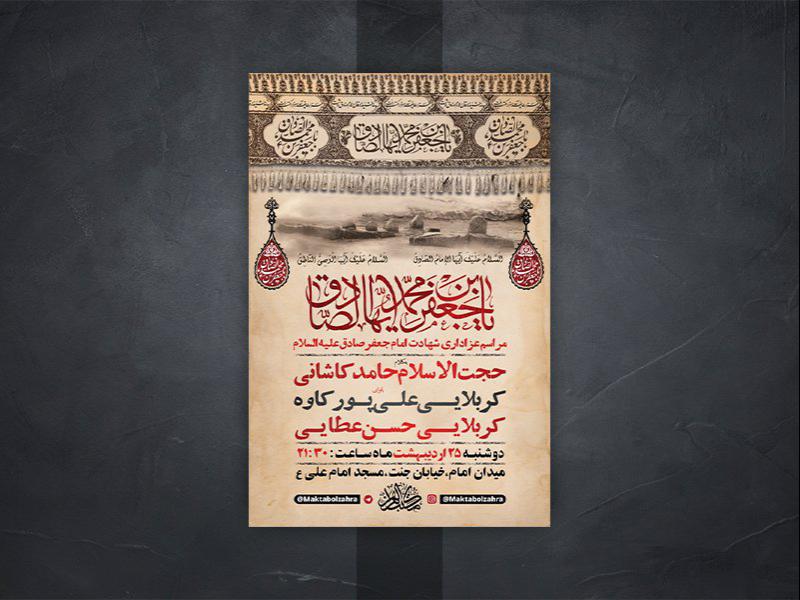 یا جعفر بن محمد ایها الصادق
السلام علیک ایها الامام الصادق
السلام علیک ایها الوصی الناطق
یا جعفر بن محمد ایها الصادق
مراسم عزاداری شهادت امام جعفر صادق علیه السلام
حجت الاسلام حامد کاشانی
کربلایی علی پورکاوه
کربلایی حسن عطایی
دوشنبه ۲۵ اردیبهشت ماه ساعت: ۲۱:۳۰
میدان امام، خیابان جنت، مسجد امام علی ع
@Maktabolzahra
@Maktabolzahra